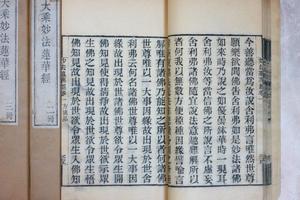 今善聽當為汝說舍利弗言唯然世尊
願樂欲聞佛告舍利弗如是妙法諸佛
如來時乃說之如優曇鉢華時一現耳
舍利弗汝等當信佛之所說言不虛妄
舍利弗諸佛隨宜說法意趣難解所以
者何我以無數方便種種因緣譬喻言
解唯有諸佛乃能知之所以者何諸佛
世尊唯以一大事因緣故出現於世舍
利弗云何名諸佛世尊唯以一大事因
緣故出現於世諸佛世尊欲令眾生開
佛知見使得清淨故出現於世欲示眾
生佛之知見故出現於世欲令眾生悟
佛知見故出現於世欲令眾生入佛知
大乘妙法蓮華經
大乘妙法蓮華經